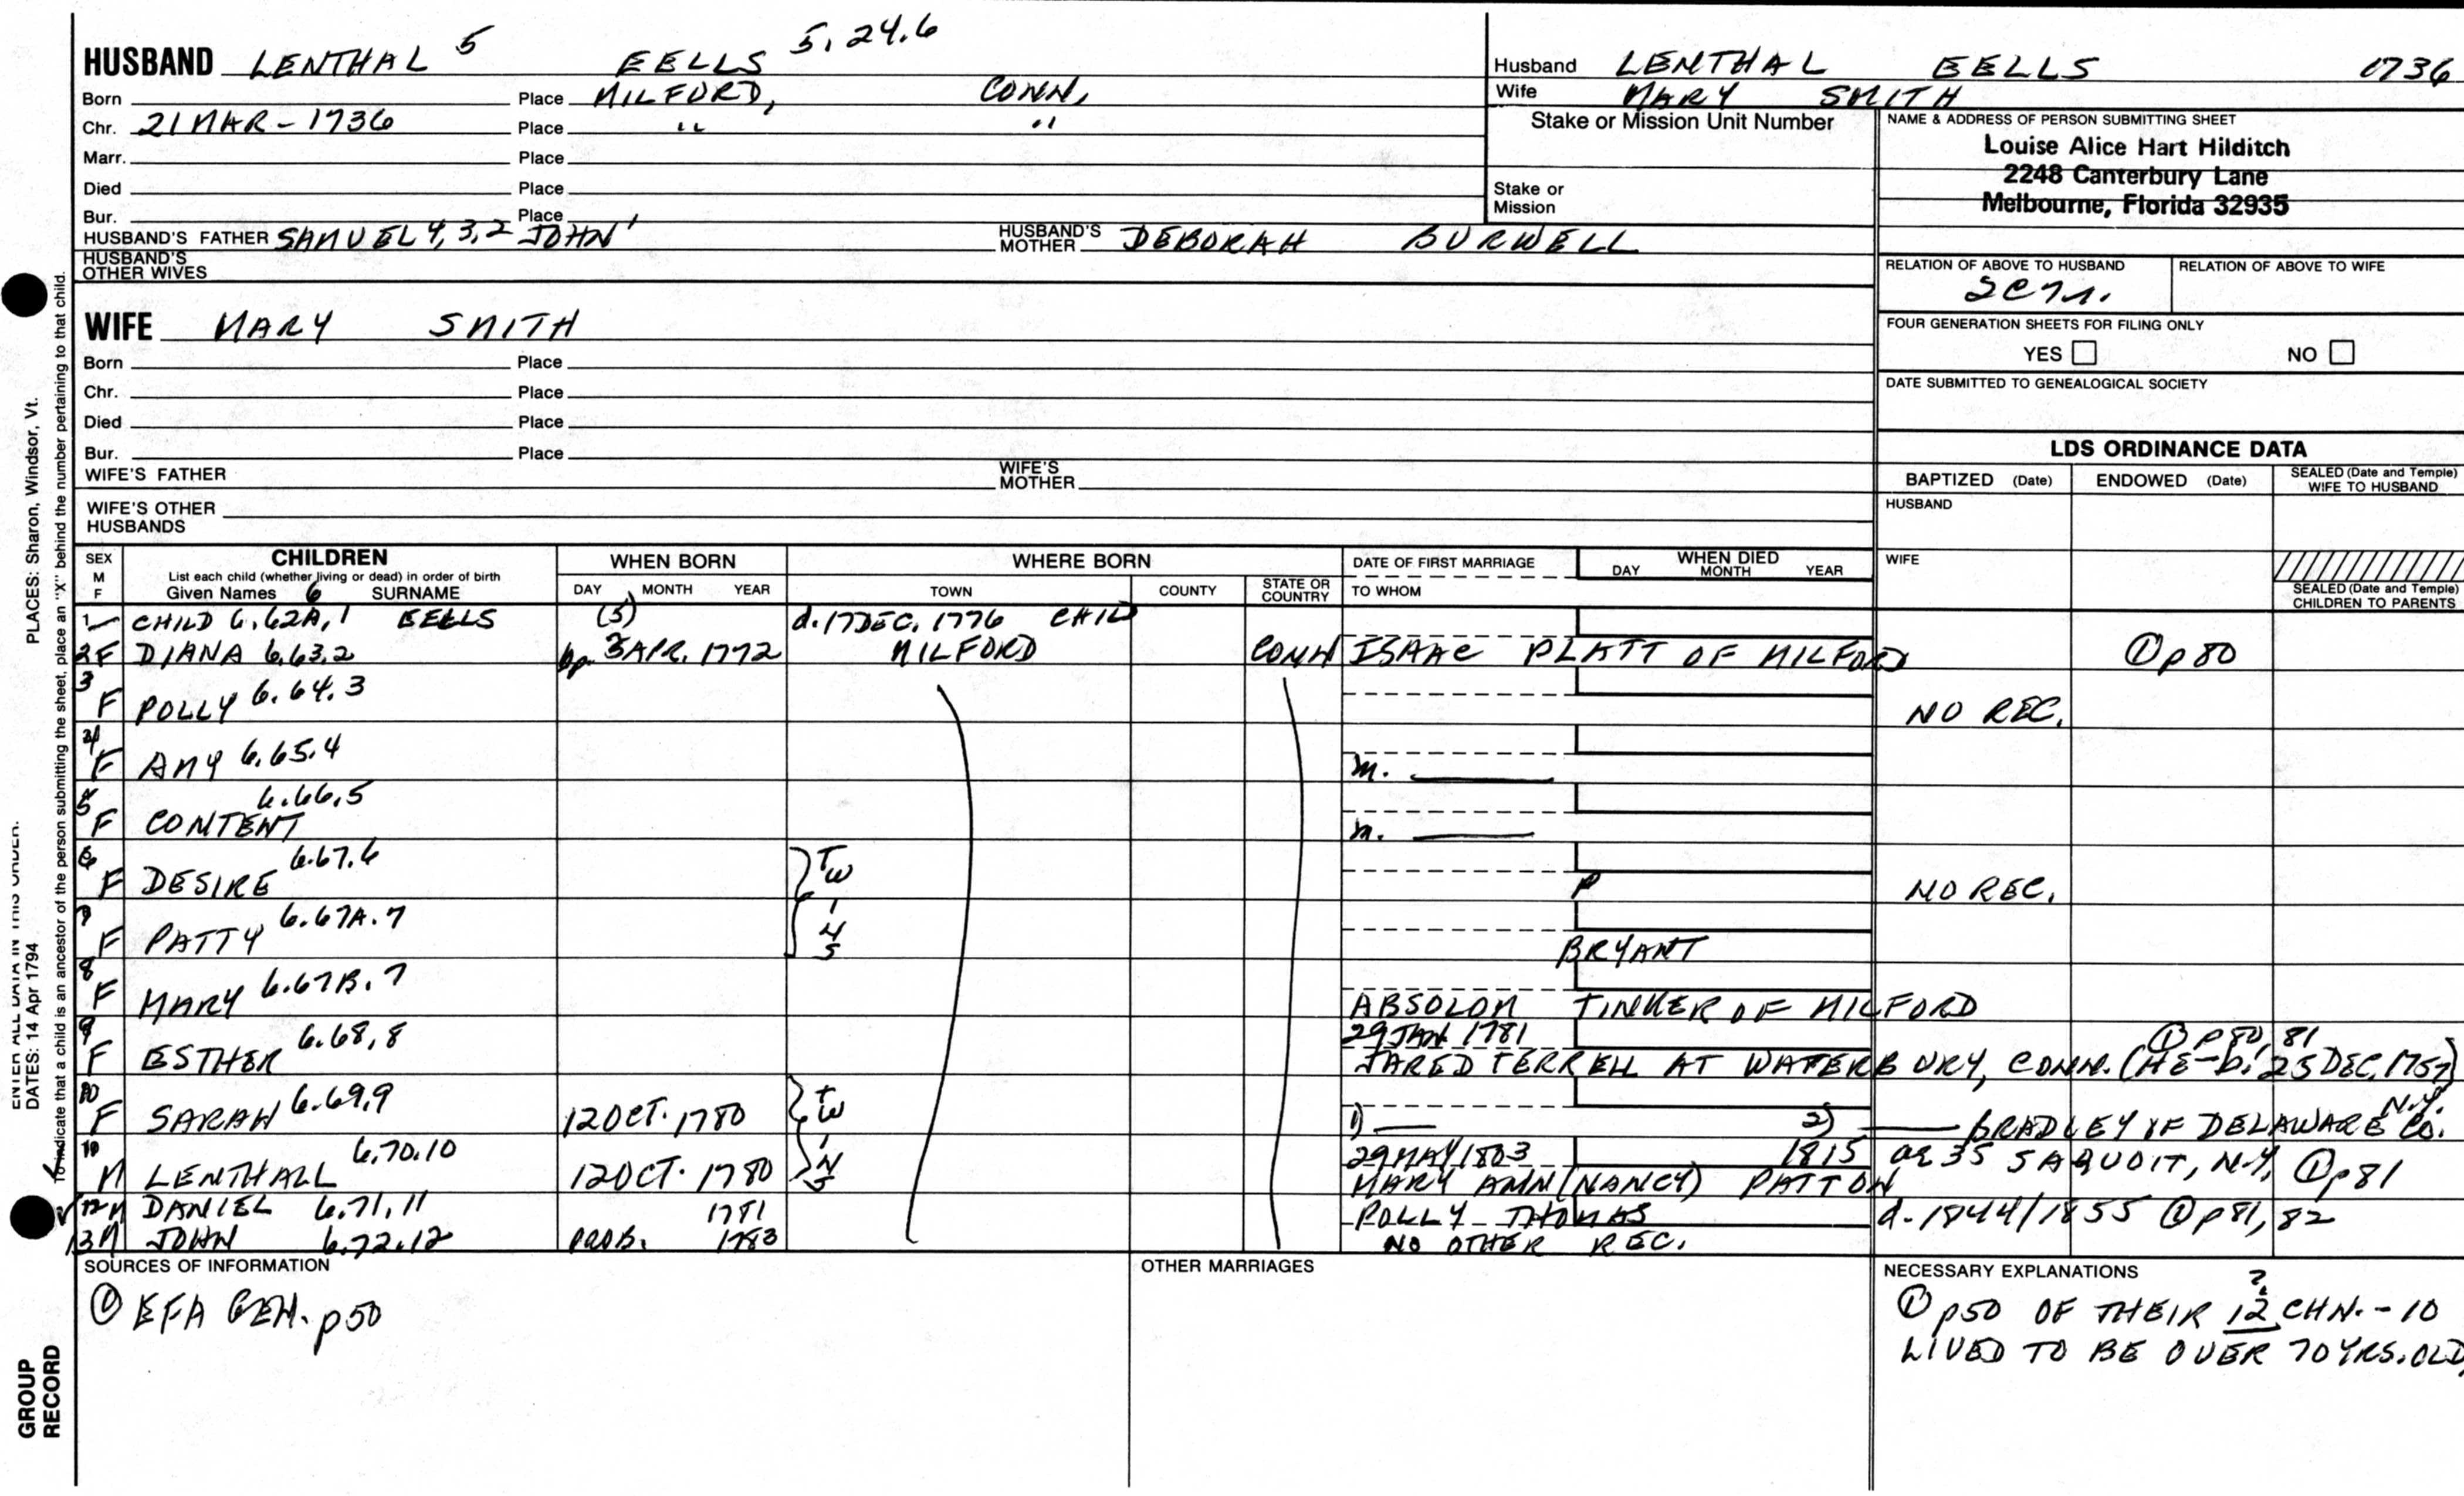 HUSBAND LENTHAL 5 EELLS 5.24.6
Born Place MILFORD, CONN.
Chr. 21 MAR - 1736 Place " "
Marr. Place
Died Place
Bur. Place
HUSBAND'S FATHER SAMUEL 4,3,2 JOHN 1 HUSBAND'S MOTHER DEBORAH BURWELL
HUSBAND'S OTHER WIVES
Husband LENTHAL EELLS 1736
Wife MARY SMITH
Stake or Mission Unit Number
Stake or Mission
NAME & ADDRESS OF PERSON SUBMITTING SHEET
Louise Alice Hart Hilditch
2248 Canterbury Lane
Melbourne, Florida 32935
RELATION OF ABOVE TO HUSBAND RELATION OF ABOVE TO WIFE
FOUR GENERATION SHEETS FOR FILING ONLY
YES NO
DATE SUBMITTED TO GENEALOGICAL SOCIETY
WIFE MARY SMITH
Born Place
Chr. Place
Died Place
Bur. Place
WIFE'S FATHER WIFE'S MOTHER
WIFE'S OTHER HUSBANDS
LDS ORDINANCE DATA
BAPTIZED (Date) ENDOWED (Date) SEALED (Date and Temple) WIFE TO HUSBAND
HUSBAND
WIFE
SEALED (Date and Temple) CHILDREN TO PARENTS
SEX M F
CHILDREN
List each child (whether living or dead) in order of birth
Given Names 6 SURNAME
WHEN BORN
DAY MONTH YEAR
WHERE BORN
TOWN COUNTY STATE OR COUNTRY
DATE OF FIRST MARRIAGE
TO WHOM
WHEN DIED
DAY MONTH YEAR
1 CHILD 6.62A.1 EELLS (5) d. 17 DEC. 1776 CHILD
2 F DIANA 6.63.2 bp. 3 APR. 1772 MILFORD CONN ISAAC PLATT OF MILFORD ① p80
3 F POLLY 6.64.3 NO REC.
4 F AMY 6.65.4 m.
5 F CONTENT 6.66.5 m.
6 F DESIRE 6.67.6 NO REC.
7 F PATTY 6.67A.7 BRYANT
TWINS
8 F MARY 6.67B.7 ABSOLOM TINKER OF MILFORD
9 F ESTHER 6.68.8 29 JAN 1781 ① p80, 81
JARED TERRELL AT WATERBURY, CONN. (HE-b. 25 DEC. 1757)
10 F SARAH 6.69.9 12 OCT. 1780 1) 2) BRADLEY OF DELAWARE CO. N.Y.
M LENTHALL 6.70.10 12 OCT. 1780 29 MAY 1803 1815 ae 35 SAQUOIT, N.Y. ① p81
TWINS
MARY ANN (NANCY) PATTON
12 M DANIEL 6.71.11 1781 POLLY THOMAS d. 1844/1855 ① p81, 82
13 M JOHN 6.72.12 PROB. 1783 NO OTHER REC.
SOURCES OF INFORMATION
① EFA GEN. p50
OTHER MARRIAGES
NECESSARY EXPLANATIONS
① p50 OF THEIR 12 ? CHN. - 10
LIVED TO BE OVER 70 YRS. OLD
PLACES: Sharon, Windsor, Vt.
To indicate that a child is an ancestor of the person submitting the sheet, place an "X" behind the number pertaining to that child.
ENTER ALL DATA IN THIS ORDER:
DATES: 14 Apr 1794
GROUP RECORD